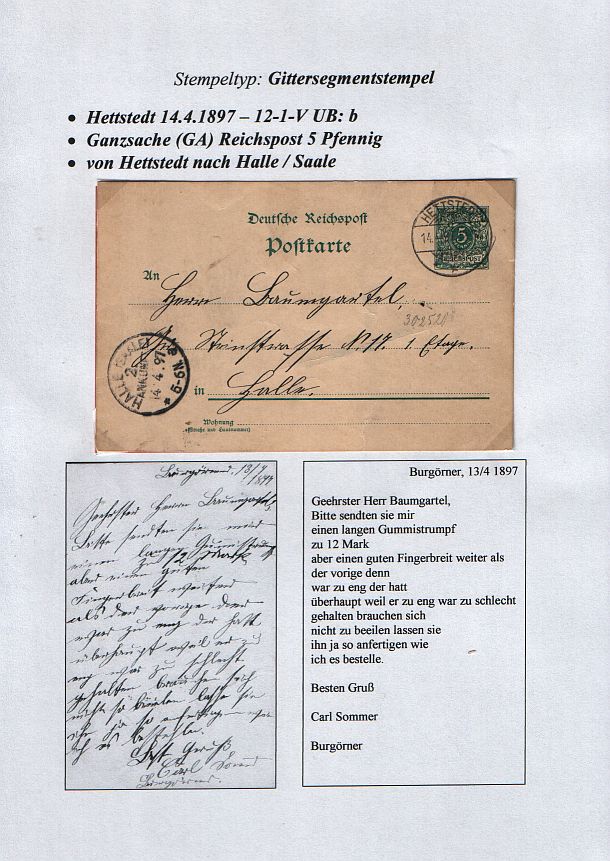 Stempeltyp: Gittersegmentstempel
• Hettstedt 14.4.1897 – 12-1-V UB: b
• Ganzsache (GA) Reichspost 5 Pfennig
• von Hettstedt nach Halle / Saale
Deutsche Reichspost
Postkarte
HETTSTEDT
14.
5
An
Herrn Baumgartel,
302520
Steinstrasse N. 17. 1 Etage.
in Halle.
HALLE (SAALE)
2
ANKUNFT
14.4.97
6-9 N.
Wohnung
(Straße und Hausnummer)
Burgörner, 13/4
1897
Geehrster Herr Baumgartel,
Bitte sendten sie mir
einen langen Gummistrumpf
zu 12 Mark
aber einen guten
Fingerbreit weiter
als der vorige denn
war zu eng der hatt
überhaupt weil er zu
eng war zu schlecht
gehalten brauchen sich
nicht so beeilen lassen sie
ihn ja so anfertigen wie
ich es bestelle.
Best. Gruß
Carl Sommer
Burgörner.
Burgörner, 13/4 1897
Geehrster Herr Baumgartel,
Bitte sendten sie mir
einen langen Gummistrumpf
zu 12 Mark
aber einen guten Fingerbreit weiter als
der vorige denn
war zu eng der hatt
überhaupt weil er zu eng war zu schlecht
gehalten brauchen sich
nicht zu beeilen lassen sie
ihn ja so anfertigen wie
ich es bestelle.
Besten Gruß
Carl Sommer
Burgörner